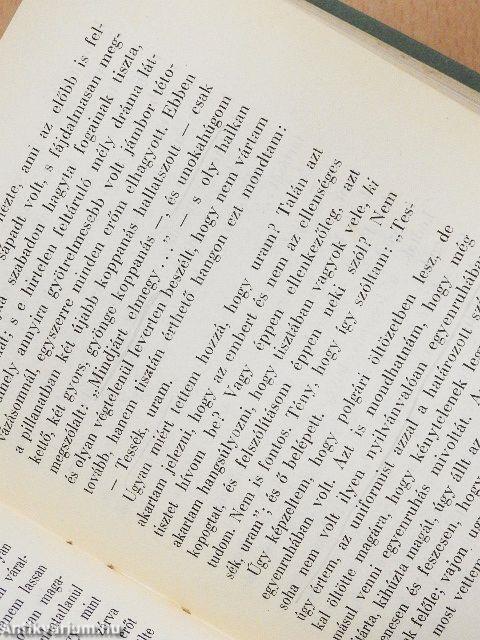 nezte, ami az előbb is fel-
sápadt volt, s fájdalmasan meg-
szabadon hagyta fogainak tiszta,
s e hirtelen feltáruló mély dráma lát-
mely annyira gyötrelmesebb volt jámbor této-
vázásomnál, egyszerre minden erőm elhagyott. Ebben
a pillanatban két újabb koppanás hallatszott – csak
kettő, két gyors, gyönge koppanás –, és unokahúgom
megszólalt: „Mindjárt elmegy . . .” – s oly halkan
és olyan végtelenül leverten beszélt, hogy nem vártam
tovább, hanem tisztán érthető hangon ezt mondtam:
– Tessék, uram.
Ugyan miért tettem hozzá, hogy uram? Talán azt
akartam jelezni, hogy az embert és nem az ellenséges
tisztet hívom be? Vagy éppen ellenkezőleg, azt
akartam hangsúlyozni, hogy tisztában vagyok vele, ki
kopogtat, és felszólításom éppen neki szól? Nem
tudom. Nem is fontos. Tény, hogy így szóltam: „Tes-
sék, uram”; és ő belépett.
Úgy képzeltem, hogy polgári öltözetben lesz, de
egyenruhában volt. Azt is mondhatnám, hogy még
soha nem volt ilyen nyilvánvalóan egyenruhában,
úgy értem, az uniformist azzal a határozott
kal öltötte magára, hogy kénytelenek
ásul venni egyenruhás mivoltát. A
tárta, kihúzta magát, úgy állt az
enesen és feszesen, hogy
felőle; vajon
most vettem
yán
várat-
nem lassan
maga-
adlanul
mint
ava
ból
Antikvarium.hu